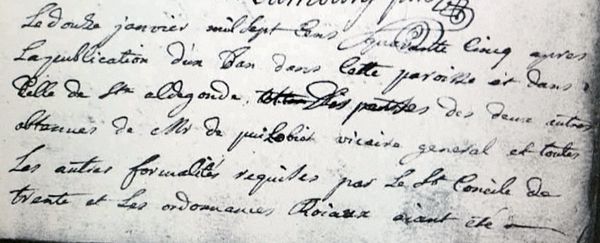 Le douze janvier mil sept Cens Quarante Cincq apres
La publication d'un Ban dans Cette paroisse et dans
Celle de Ste aldegonde, des deux autres
obtenues de Mr de vicaire general et toutes
Les autres formalités requises par Le St Concile de
trente et Les ordonnances Roiaux aiant été